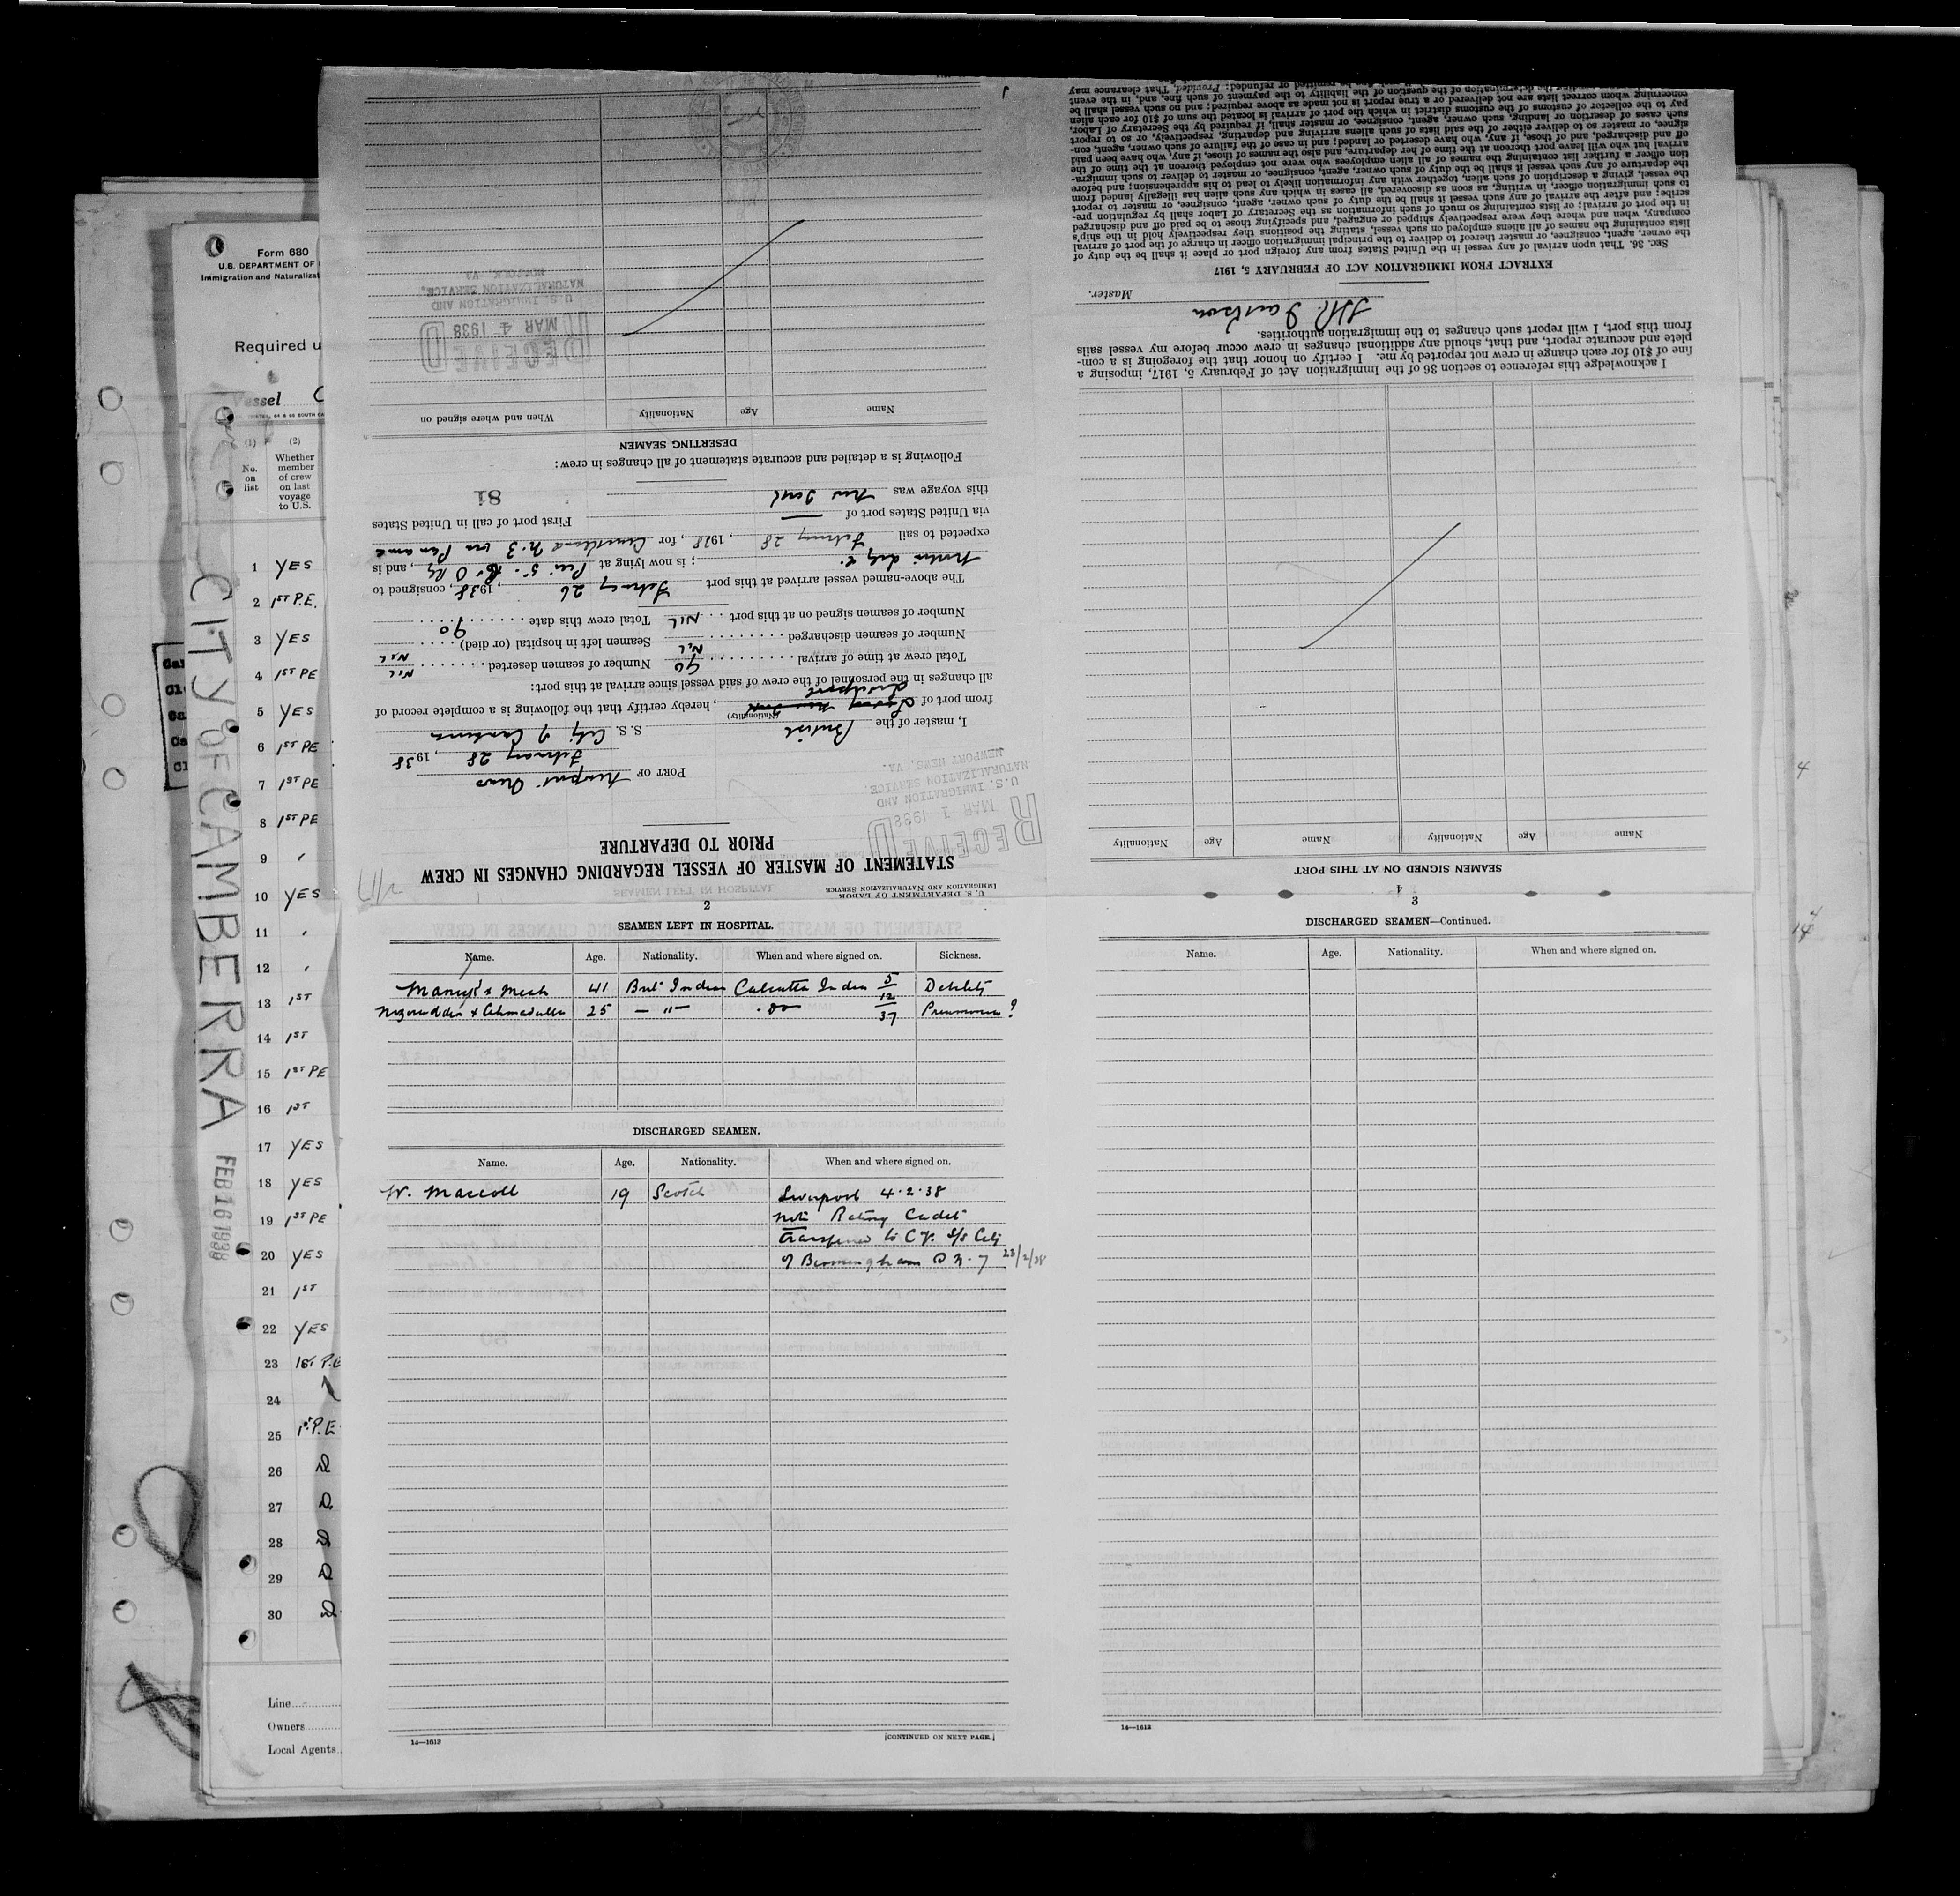 Form 680
U.S. DEPARTMENT OF
Immigration and Naturalizat
Required u
Vessel C
(1) (2)
No. on list
Whether member of crew on last voyage to U.S.
1 YES
2 1ST P.E.
3 YES
4 1ST PE
5 YES
6 1ST PE
7 1ST PE
8 1ST PE
9 '
10 YES
11 '
12 '
13 1ST
14 1ST
15 1ST PE
16 1ST
17 YES
18 YES
19 1ST PE
20 YES
21 1ST
22 YES
23 1ST P.E
24
25 1ST P.E
26 D
27 D
28 D
29 D
30 D
Line
Owners
Local Agents
CITY OF CAMBERRA FEB 16 1938
U. S. DEPARTMENT OF LABOR
IMMIGRATION AND NATURALIZATION SERVICE
STATEMENT OF MASTER OF VESSEL REGARDING CHANGES IN CREW
PRIOR TO DEPARTURE
RECEIVED
MAR 1 1938
U. S. IMMIGRATION AND
NATURALIZATION SERVICE.
NEWPORT NEWS, VA.
PORT OF Newport News
February 28, 1938
I, master of the British S. S. City of Canberra
(Nationality)
from port of Liverpool, hereby certify that the following is a complete record of
all changes in the personnel of the crew of said vessel since arrival at this port:
Total crew at time of arrival 90 Number of seamen deserted NIL
Number of seamen discharged NIL Seamen left in hospital (or died) NIL
Number of seamen signed on at this port NIL Total crew this date 90
The above-named vessel arrived at this port February 26, 1938, consigned to
; is now lying at Pier 5. C. & O Ry, and is
expected to sail February 28, 1938, for Queensland N. Z via Panama
via United States port of — First port of call in United States
this voyage was New York
81
Following is a detailed and accurate statement of all changes in crew:
DESERTING SEAMEN
Name Age Nationality When and where signed on
RECEIVED
MAR 4 1938
U. S. IMMIGRATION AND
NATURALIZATION SERVICE,
NORFOLK, VA.
2
SEAMEN LEFT IN HOSPITAL.
Name. Age. Nationality. When and where signed on. Sickness.
41 Brit Indian Calcutta India 5/12/37 Debility
25 — " — do Pneumonia ?
DISCHARGED SEAMEN.
Name. Age. Nationality. When and where signed on.
W. Maccoll 19 Scotch Liverpool 4.2.38
Note Rating Cadet
transferred to s/s City
of Birmingham 23/2/38
14—1613 [CONTINUED ON NEXT PAGE.]
3
DISCHARGED SEAMEN—Continued.
Name. Age. Nationality. When and where signed on.
14—1613
4
SEAMEN SIGNED ON AT THIS PORT
Name Age Nationality Name Age Nationality
I acknowledge this reference to section 36 of the Immigration Act of February 5, 1917, imposing a
fine of $10 for each change in crew not reported by me. I certify on honor that the foregoing is a com-
plete and accurate report, and that, should any additional changes in crew occur before my vessel sails
from this port, I will report such changes to the immigration authorities.
Master.
EXTRACT FROM IMMIGRATION ACT OF FEBRUARY 5, 1917
SEC. 36. That upon arrival of any vessel in the United States from any foreign port or place it shall be the duty of
the owner, agent, consignee, or master thereof to deliver to the principal immigration officer in charge of the port of arrival
lists containing the names of all aliens employed on such vessel, stating the positions they respectively hold in the ship's
company, when and where they were respectively shipped or engaged, and specifying those to be paid off and discharged
in the port of arrival; or lists containing so much of such information as the Secretary of Labor shall by regulation pre-
scribe; and after the arrival of any such vessel it shall be the duty of such owner, agent, consignee, or master to report
to such immigration officer, in writing, as soon as discovered, all cases in which any such alien has illegally landed from
the vessel, giving a description of such alien, together with any information likely to lead to his apprehension; and before
the departure of any such vessel it shall be the duty of such owner, agent, consignee, or master to deliver to such immigra-
tion officer a further list containing the names of all alien employees who were not employed thereon at the time of the
arrival but who will leave port thereon at the time of her departure, and also the names of those, if any, who have been paid
off and discharged, and of those, if any, who have deserted or landed; and in case of the failure of such owner, agent, con-
signee, or master so to deliver either of the said lists of such aliens arriving and departing, respectively, or so to report
such cases of desertion or landing, such owner, agent, consignee, or master shall, if required by the Secretary of Labor,
pay to the collector of customs of the customs district in which the port of arrival is located the sum of $10 for each alien
concerning whom correct lists are not delivered or a true report is not made as above required; and no such vessel shall be
determination of the question of the liability to the payment of such fine, and, in the event
remitted or refunded: Provided, That clearance may